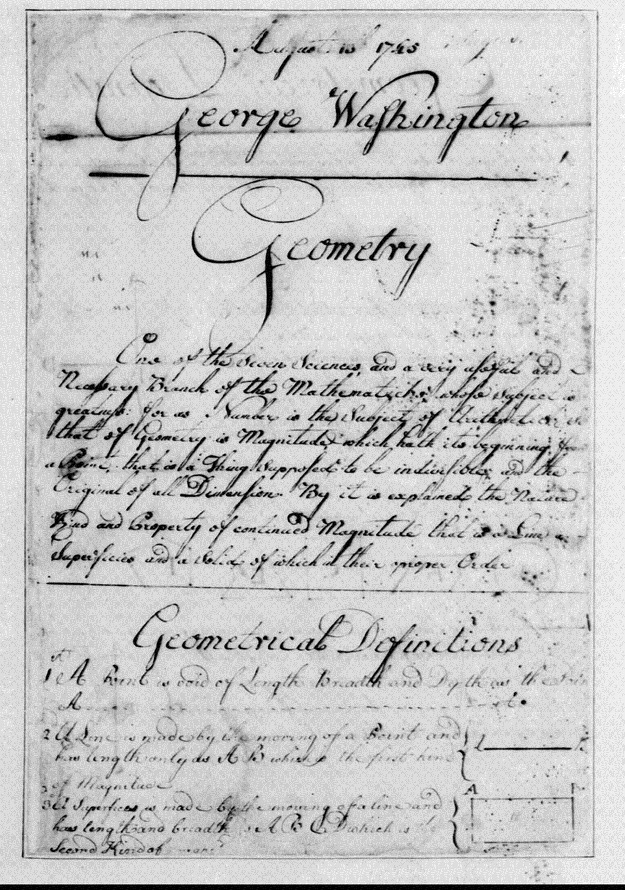 August 13th 1745
George Washington
Geometry
One of the Seven Sciences, and a very useful and
Necessary Branch of the Mathematicks, whose Subject is
greatness: for as Number is the Subject of Arithmetick so
that of Geometry is Magnitude, which hath its beginning from
a Point, that is a Thing Supposed to be indivisible, and the
Original of all Dimension. By it is explained the Nature
Kind and Property of continued Magnitude that is a Line, a
Superficies and a Solid, of which in their proper Order
Geometrical Definitions
1st A Point is void of Length Breadth and Depth as the Point
A A.
2 A Line is made by the moving of a Point and
has length only as A B which is the first kind
of Magnitude
3 A Superficies is made by the moving of a line and
has length and breadth as A B C D which is the
Second Kind of
A